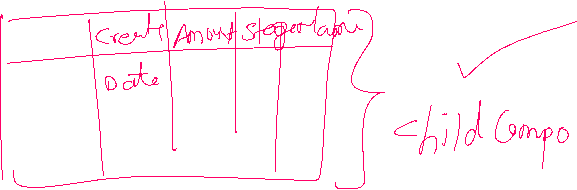 Create Amount StageName
Date
Child Compo